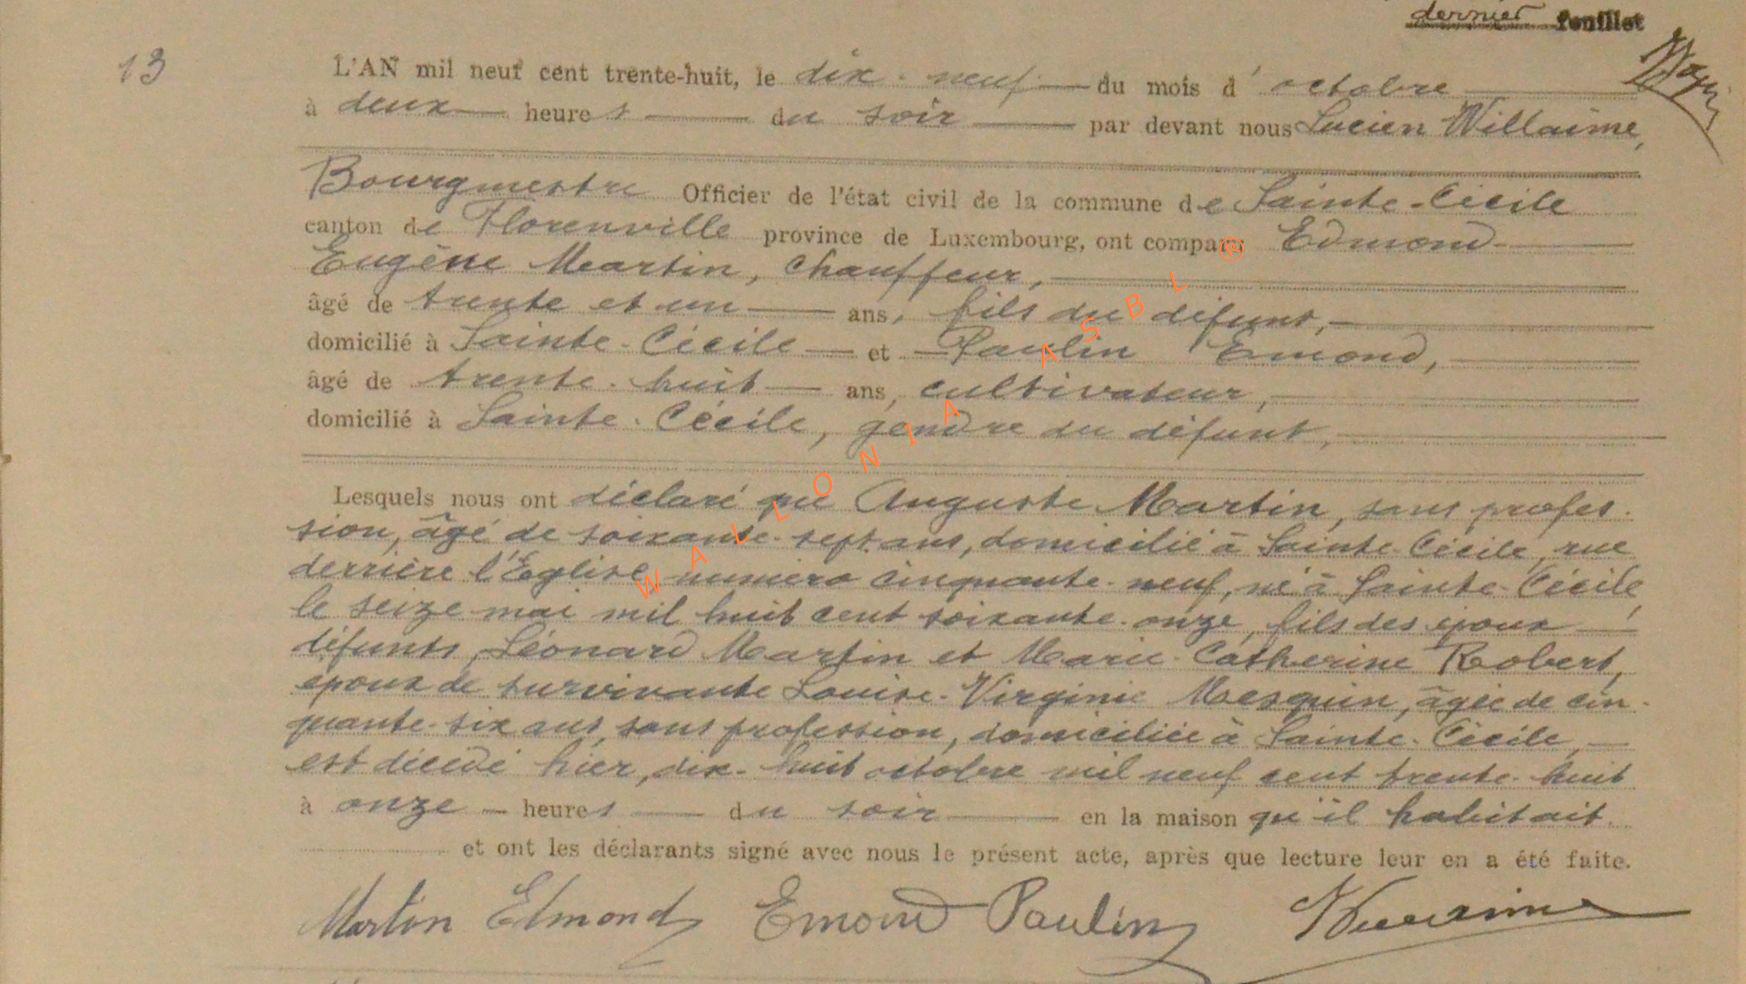 dernier feuillet
13
L'AN mil neuf cent trente-huit, le dix-neuf du mois d'octobre
à deux heures du soir par devant nous Lucien Willaime,
Bourgmestre Officier de l'état civil de la commune de Sainte-Cécile
canton de Florenville province de Luxembourg, ont comparu Edmond
Eugène Martin, chauffeur,
âgé de trente et un ans, fils du défunt,
domicilié à Sainte-Cécile et Paulin Emond,
âgé de trente-huit ans, cultivateur,
domicilié à Sainte-Cécile, gendre du défunt,
Lesquels nous ont déclaré que Auguste Martin, sans profes-
sion, âgé de soixante-sept ans, domicilié à Sainte-Cécile, rue
derrière l'Eglise numéro cinquante-neuf, né à Sainte-Cécile,
le seize mai mil huit cent soixante-onze, fils des époux
défunts, Léonard Martin et Marie-Catherine Robert,
époux de survivante Louise-Virginie Mesquin, âgée de cin-
quante-six ans, sans profession, domiciliée à Sainte-Cécile,
est décédé hier, dix-huit octobre mil neuf cent trente-huit
à onze heures du soir en la maison qu'il habitait.
et ont les déclarants signé avec nous le présent acte, après que lecture leur en a été faite.
Martin Edmond Emond Paulin Willaime
WALLONIA ASBL ®